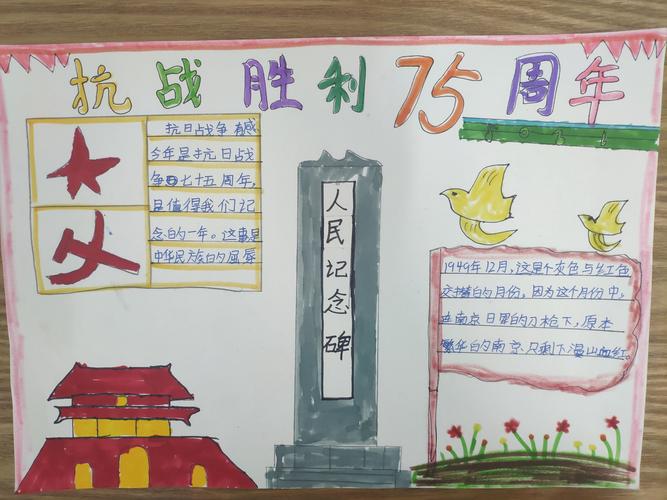 抗战胜利75周年
抗日战争有感
今年是抗日战
争七十五周年,
是值得我们记
念的一年。这事是
中华民族的屈辱
人民记念碑
1949年12月,这是个灰色与红色
交播的月份,因为这个月份中,
在南京日军的刀枪下,原本
繁华的南京只剩下漫山血红。